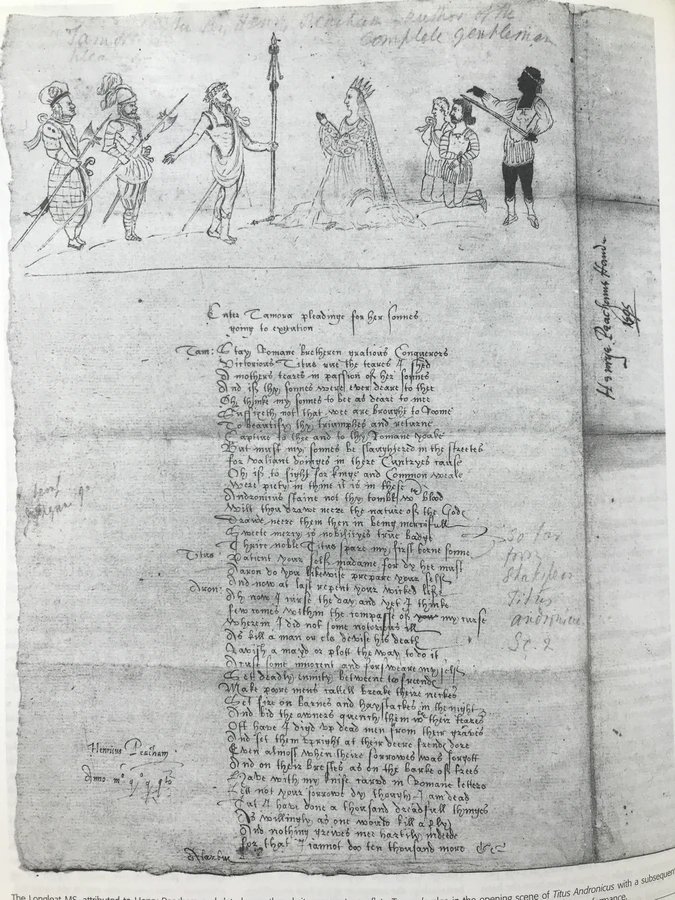 Henry Peacham author of the
complete gentleman
Enter Tamora pleadinge for her sonnes
going to execution
Tam: Stay Romane bretheren gratious Conquerors
Victorious Titus rue the teares I shed
A mothers teares in passion of her sonnes
And if thy sonnes were ever deare to thee
Oh thinke my sonnes to bee as deare to mee
Suffizeth not that wee are brought to Roome
To beautify thy triumphes and returne
Captive to thee and to thy Romane yoake
But must my sonnes be slaughtered in the streetes
for valiant doinges in there Cuntryes cause
Oh if to fight for kinge and Common weale
Were piety in thine it is in these
Andronicus staine not thy tombe wth blood
Wilt thou drawe neere the nature of the Gods
Drawe neere them then in being mercifull
Sweete mercy is nobilityes true badge
Thrice noble Titus spare my first borne sonne
Titus: Patient your self madame for dy hee must
Aaron do you likewise prepare your self
And now at last repent your wicked life
Aron: Ah now I curse the day and yet I thinke
few comes within the compasse of my curse
Wherein I did not some notorious ill
As kill a man or els devise his death
Ravish a mayd or plott the way to do it
Acuse some innocent and forsweare my self
Set deadly enmity betweene too freendes
Make poore mens cattell breake theire neckes
Set fire on barnes and haystackes in the night
And bid the owners quench them wth their teares
Oft have I digd up dead men from their graves
And set them upright at their deere frendes dore
Even almost when theire sorrowes was forgott
And on their brestes as on the barke of trees
Have with my knife carvd in Romane letters
Lett not your sorrowe dy though I am dead
Tut I have done a thousand dreadfull thinges
As willingly as one would kill a fly
And nothing greives mee hartily indeede
for that I cannot doo ten thousand more &c
Alarbus
So far
from
Shakspear
Titus
Andronicus
Sc. 2
Henricus Peacham
Anno mo qo gqto
Henrye Peachams Hande
1595
The Longleat MS, attributed to Henry Peacham
in the opening scene of Titus Andronicus with a subsequent